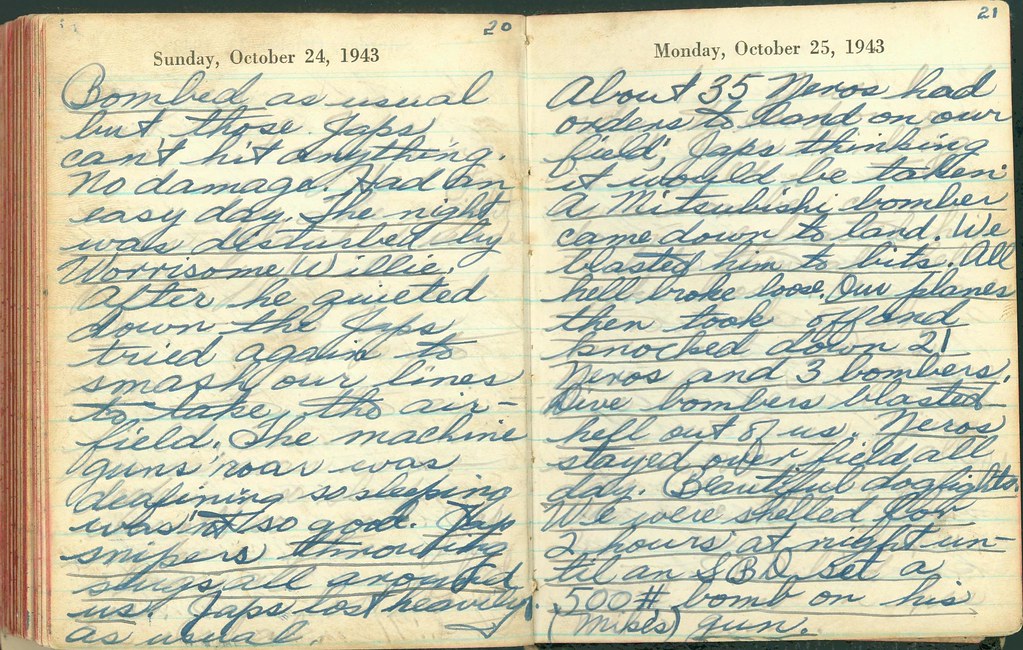 20
Sunday, October 24, 1943
Bombed as usual
but those Japs
can't hit anything.
No damage. Had an
easy day. The night
was disturbed by
Worrisome Willie.
After he quieted
down the Japs
tried again to
smash our lines
to take the air-
field. The machine
guns roar was
deafining so sleeping
was'nt so good. Jap
snipers throwing
slugs all around
us. Japs lost heavily
as usual.
21
Monday, October 25, 1943
About 35 Neros had
orders to land on our
field, Japs thinking
it would be taken.
A Mitsubishi bomber
came down to land. We
blasted him to bits. All
hell broke loose. Our planes
then took off and
knocked down 21
Neros and 3 bombers.
Dive bombers blasted
hell out of us. Neros
stayed over field all
day. Beautiful dogfights.
We were shelled for
2 hours at night un-
til an SBD set a
500# bomb on his
(Mikes) gun.